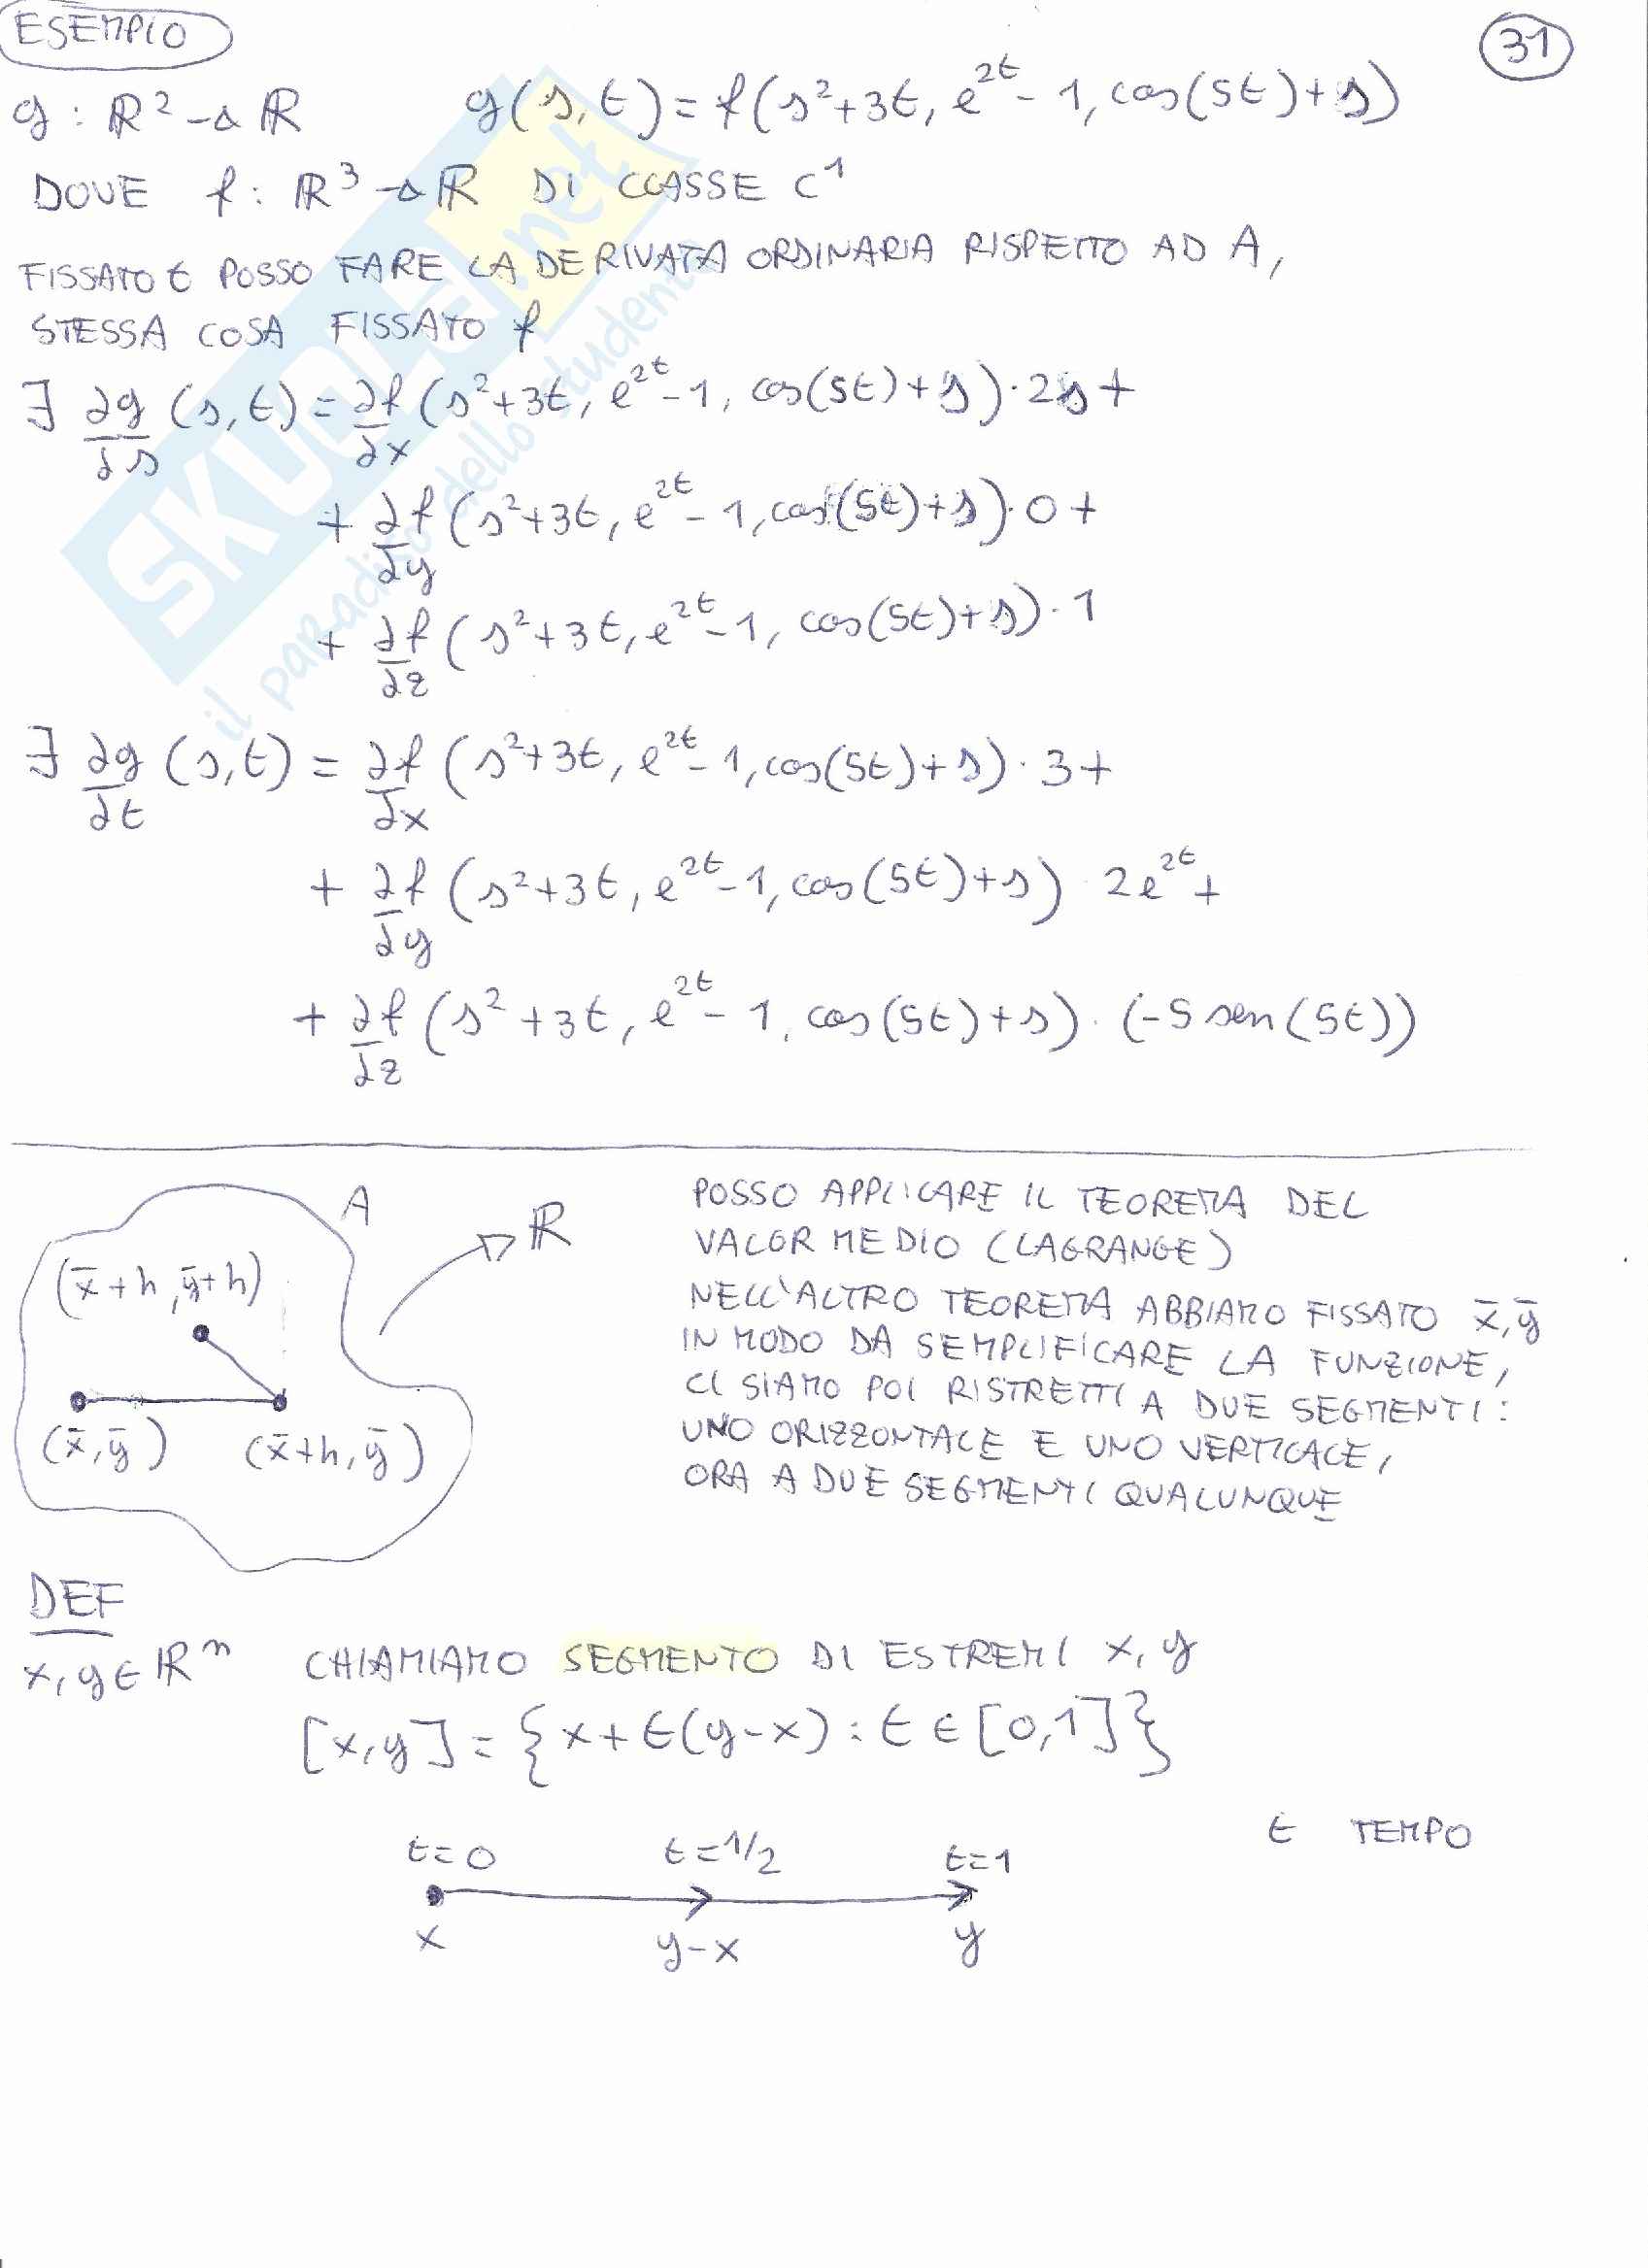 ESEMPIO
31
g : ℝ² → ℝ g(s,t) = f(s²+3t, e^{2t}-1, cos(5t)+s)
DOVE f: ℝ³ → ℝ DI CLASSE C¹
FISSATO t POSSO FARE LA DERIVATA ORDINARIA RISPETTO AD A,
STESSA COSA FISSATO f
∃ ∂g/∂s (s,t) = ∂f/∂x (s²+3t, e^{2t}-1, cos(5t)+s)·2s+
+ ∂f/∂y (s²+3t, e^{2t}-1, cos(5t)+s)·0+
+ ∂f/∂z (s²+3t, e^{2t}-1, cos(5t)+s)·1
∃ ∂g/∂t (s,t) = ∂f/∂x (s²+3t, e^{2t}-1, cos(5t)+s)·3+
+ ∂f/∂y (s²+3t, e^{2t}-1, cos(5t)+s)·2e^{2t}+
+ ∂f/∂z (s²+3t, e^{2t}-1, cos(5t)+s)·(-5 sen(5t))
SKUOLA.net
il paradiso dello studente
A
ℝ
(x̄+h, ȳ+h)
(x̄,ȳ) (x̄+h,ȳ)
POSSO APPLICARE IL TEOREMA DEL
VALOR MEDIO (LAGRANGE)
NELL'ALTRO TEOREMA ABBIAMO FISSATO x̄,ȳ
IN MODO DA SEMPLIFICARE LA FUNZIONE,
CI SIAMO POI RISTRETTI A DUE SEGMENTI:
UNO ORIZZONTALE E UNO VERTICALE,
ORA A DUE SEGMENTI QUALUNQUE
DEF
x,y ∈ ℝⁿ CHIAMIAMO SEGMENTO DI ESTREMI x,y
[x,y] = {x+t(y-x) : t ∈ [0,1]}
t TEMPO
t=0 t=1/2 t=1
x y-x y